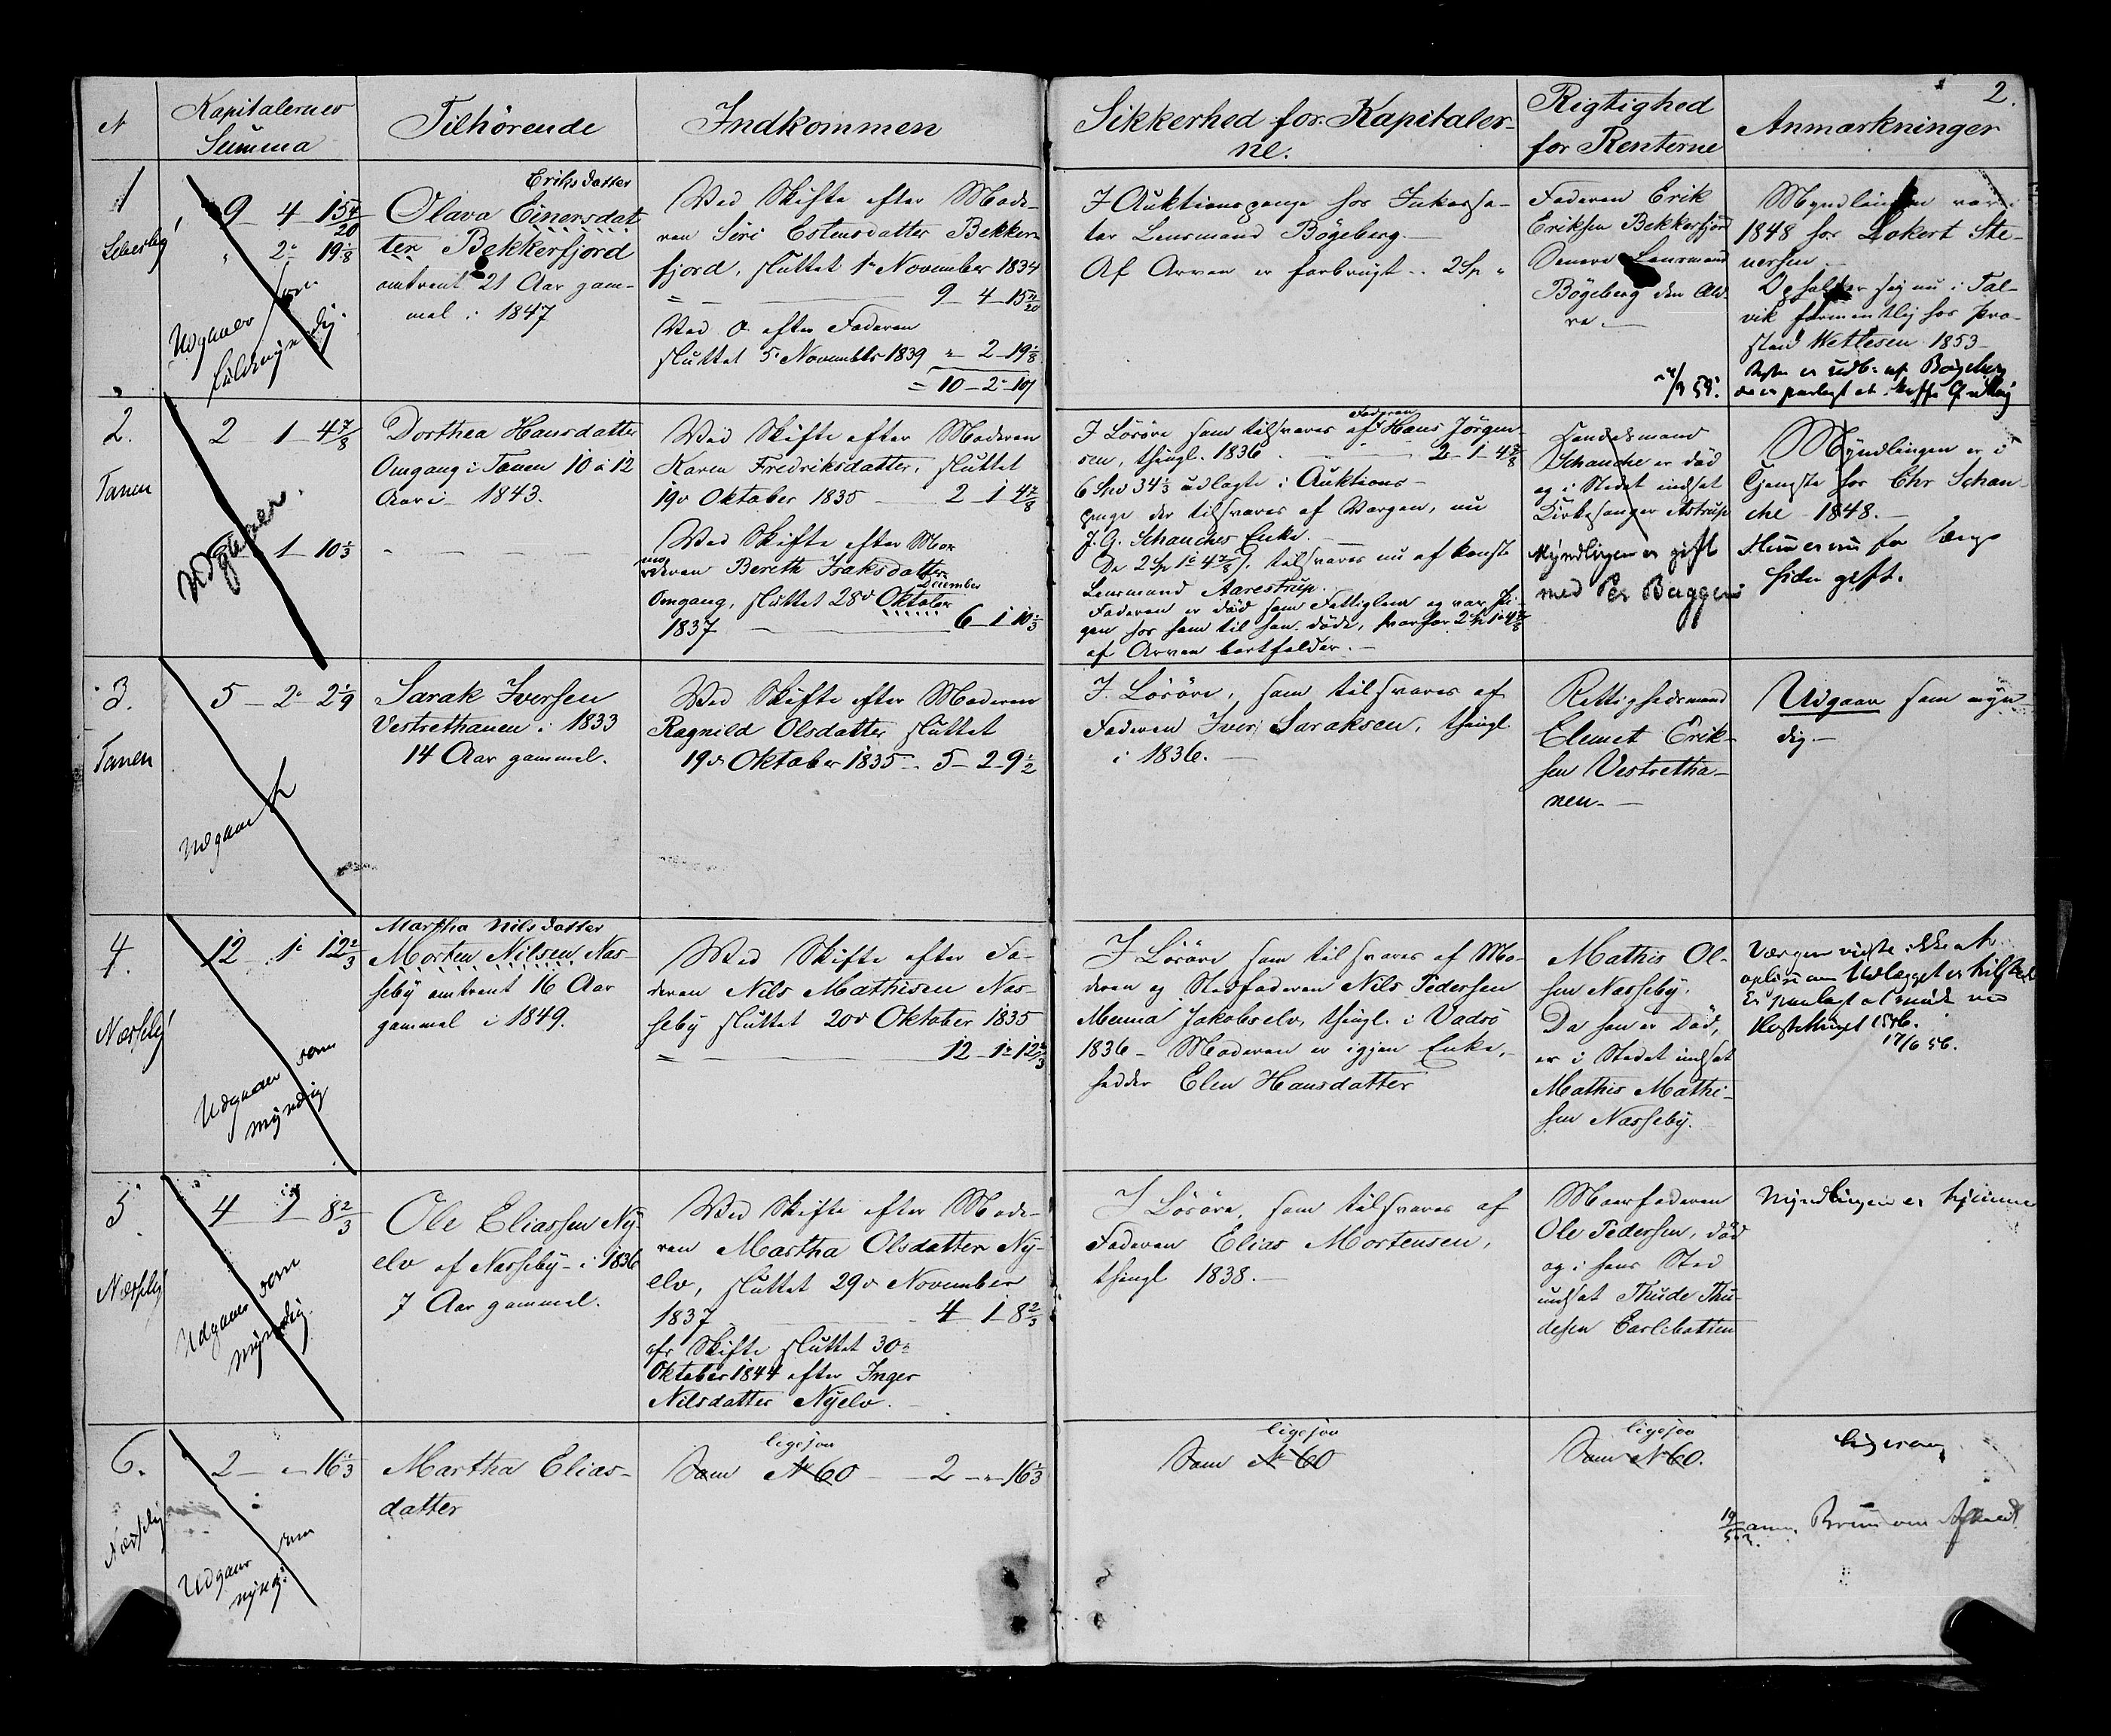 2.
N
Kapitalernes
Summa
Tilhörende
Indkommen
Sikkerhed for Kapitaler-
ne.
Rigtighed
for Renterne
Anmærkninger
1
9 - 4 - 15 4/20
" 2 - 19 1/8
Udgaaer som
fuldmyndig.
Eriksdatter
Olava Einersdat
ter Bekkerfjord
omtrent 21 Aar gam-
mel i 1847
Ved Skifte efter Mode-
ren Siri Estensdatter Bekker-
fjord, sluttet 1 November 1834
9 - 4 - 15 4/20
Ved do efter Faderen
sluttet 5 November 1839 " - 2 - 19 1/8
= 10 - 2 - 10
I Auktionspenge hos Inkassa-
tor Lensmand Bögeberg.
Af Arven er forbrugt .. 2 Sp "
Faderen Erik
Eriksen Bekkerfjord
Senere Lensmand
Bögeberg den Æld-
re.
Myndlingen var i
1848 hos Lokert Ste-
nersen.
Opholder sig nu i Tal-
vik formentlig hos Pro-
sten Kettesen 1853
2.
Tanen
2 - 1 - 4 7/8
1 - 10 1/3
Udgaaer.
Dorthea Hansdatter
Omgang i Tanen 10 à 12
Aar i 1843.
Ved Skifte efter Moderen
Karen Fredriksdatter, sluttet
19de Oktober 1835 - 2 - 1 4 7/8
Ved Skifte efter Mor
moderen Bereth Isaksdatter
December
Omgang, sluttet 28de Oktober
1837 - 6 - 1 10 1/3
Faderen
I Lösöre som tilsvares af Hans Jörgen-
sen, thingl. 1836 2 - 1 - 4 7/8
6 Spd 34 1/3 udlagte i Auktions-
penge der tilsvares af Værgen, nu
J. G. Schanches Enke.
De 2 Sp 1 4 7/8 tilsvares nu af konst.
Lensmand Aarestrup.
Faderen er död som Fattiglem og var
gen hos ham til han döde, hvorfor 2 Sp 1 4 7/8
af Arven bortfalder.
Handelsmand
Schanche er död
og i Stedet indsat
Kirkesanger Astrup
Myndlingen er gift
med Per Baggen
Myndlingen er i
Tjeneste hos Chr Schan-
che 1848.
Hun er nu for længe
siden gift.
3.
Tanen
5 - 2 - 2 1/9
Udgaaet
Sarak Iversen
Vestrethanen i 1833
14 Aar gammel.
Ved Skifte efter Moderen
Ragnild Olsdatter sluttet
19de Oktober 1835 - 5 - 2 - 9 1/2
I Lösöre, som tilsvares af
Faderen Iver Saraksen, thingl.
i 1836.
Rettighedsmand
Clemet Erik-
sen Vestretha-
nen.
Udgaar som myn-
dig
4.
Næsseby
12 - 1 12 2/3
Udgaaer som
myndig
Martha Nilsdatter
Morten Nilsen Næs-
seby omtrent 16 Aar
gammel i 1849.
Ved Skifte efter Fa-
deren Nils Mathisen Næs-
seby sluttet 20de Oktober 1835
12 - 1 12 2/3
I Lösöre som tilsvares af Mo-
deren og Stedfaderen Nils Pedersen
Menna Jakobselv, thingl. i Vadsö
1836 - Moderen er igjen Enke,
hedder Elen Hansdatter
Mathis Ol-
sen Næsseby.
Da han er Död,
er i Stedet indsat
Mathis Mathi-
sen Næsseby.
Værgen vidste ikke at
oplyse om Udlægget er tilstede
Er paalagt at möde ved
Høstthinget 1856.
17/6 56.
5
Næsseby
4 1 8 2/3
Udgaaer som
myndig.
Ole Eliassen Ny-
elv af Næsseby - i 1836
7 Aar gammel.
Ved Skifte efter Mode-
ren Martha Olsdatter Ny-
elv, sluttet 29de November
1837 - 4 1 8 2/3
cfr Skifte sluttet 30
Oktober 1844 efter Inger
Nilsdatter Nyelv.
I Lösöre, som tilsvares af
Faderen Elias Mortensen,
thingl 1838.
Morfaderen
Ole Pedersen, död
og i hans Sted
indsat Thude Thu-
desen Carlebotten
Myndlingen er hjemme
6.
Næsseby
2 - " - 16 1/3
Udgaaer som
mynd.
Martha Elias-
datter
ligesaa
Som No 60 - 2 - " - 16 1/3
ligesaa
Som No 60
ligesaa
Som No 60.
ligesaa